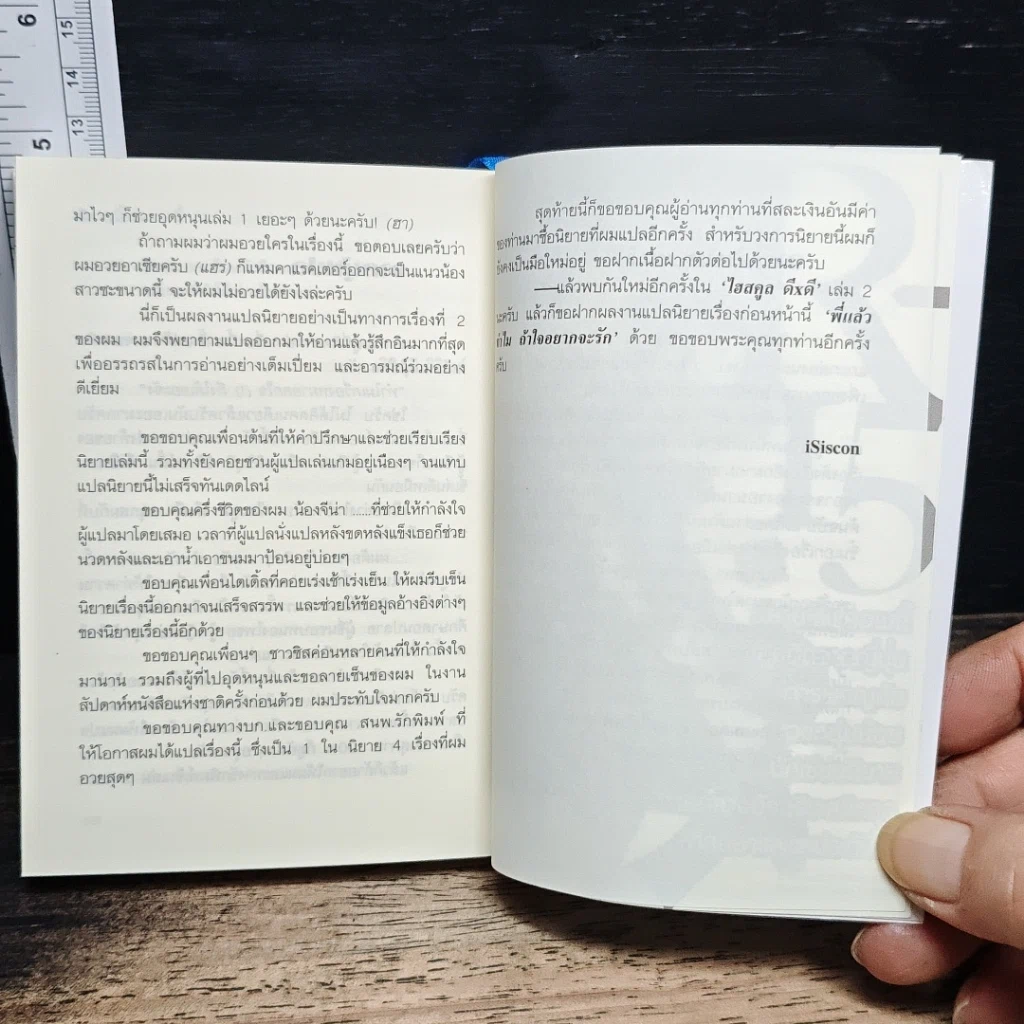 6
15
14
13
5
มาไวๆ ก็ช่วยอุดหนุนเล่ม 1 เยอะๆ ด้วยนะครับ! (ฮา)
ถ้าถามผมว่าผมอวยใครในเรื่องนี้ ขอตอบเลยครับว่า
ผมอวยอาเซียครับ (แฮร่) ก็แหมคาแรคเตอร์ออกจะเป็นแนวน้อง
สาวซะขนาดนี้ จะให้ผมไม่อวยได้ยังไงล่ะครับ
นี่ก็เป็นผลงานแปลนิยายอย่างเป็นทางการเรื่องที่ 2
ของผม ผมจึงพยายามแปลออกมาให้อ่านแล้วรู้สึกอินมากที่สุด
เพื่ออรรถรสในการอ่านอย่างเต็มเปี่ยม และอารมณ์ร่วมอย่าง
ดีเยี่ยม
ขอขอบคุณเพื่อนต้นที่ให้คำปรึกษาและช่วยเรียบเรียง
นิยายเล่มนี้ รวมทั้งยังคอยชวนผู้แปลเล่นเกมอยู่เนืองๆ จนแทบ
แปลนิยายนี้ไม่เสร็จทันเดดไลน์
ขอบคุณครึ่งชีวิตของผม น้องจีน่า .....ที่ช่วยให้กำลังใจ
ผู้แปลมาโดยเสมอ เวลาที่ผู้แปลนั่งแปลหลังขดหลังแข็งเธอก็ช่วย
นวดหลังและเอาน้ำเอาขนมมาป้อนอยู่บ่อยๆ
ขอบคุณเพื่อนไตเติ้ลที่คอยเร่งเช้าเร่งเย็น ให้ผมรีบเข็น
นิยายเรื่องนี้ออกมาจนเสร็จสรรพ และช่วยให้ข้อมูลอ้างอิงต่างๆ
ของนิยายเรื่องนี้อีกด้วย
ขอขอบคุณเพื่อนๆ ชาวซิสค่อนหลายคนที่ให้กำลังใจ
มานาน รวมถึงผู้ที่ไปอุดหนุนและขอลายเซ็นของผม ในงาน
สัปดาห์หนังสือแห่งชาติครั้งก่อนด้วย ผมประทับใจมากครับ
ขอขอบคุณทางบก.และขอบคุณ สนพ.รักพิมพ์ ที่
ให้โอกาสผมได้แปลเรื่องนี้ ซึ่งเป็น 1 ใน นิยาย 4 เรื่องที่ผม
อวยสุดๆ
สุดท้ายนี้ก็ขอขอบคุณผู้อ่านทุกท่านที่สละเงินอันมีค่า
ของท่านมาซื้อนิยายที่ผมแปลอีกครั้ง สำหรับวงการนิยายนี้ผมก็
ยังคงเป็นมือใหม่อยู่ ขอฝากเนื้อฝากตัวต่อไปด้วยนะครับ
—แล้วพบกันใหม่อีกครั้งใน ‘ไฮสคูล ดีxดี’ เล่ม 2
นะครับ แล้วก็ขอฝากผลงานแปลนิยายเรื่องก่อนหน้านี้ ‘พี่แล้ว
ทำไม ถ้าใจอยากจะรัก’ ด้วย ขอขอบพระคุณทุกท่านอีกครั้ง
ครับ
iSiscon